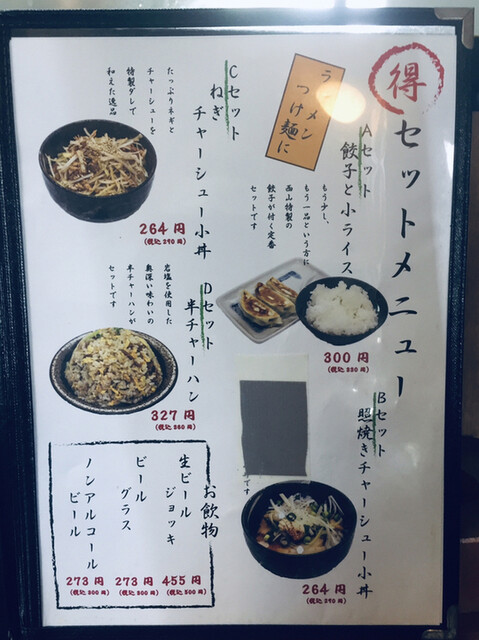 得
セットメニュー
ラーメン
つけ麺に
Aセット
餃子と小ライス
もう少し、
もう一品という方に
西山特製の
餃子が付く定番
セットです
300円
(税込 330円)
Bセット
照焼きチャーシュー小丼
です
264円
(税込 290円)
Cセット
ねぎ
チャーシュー小丼
たっぷりネギと
チャーシューを
特製ダレで
和えた逸品
264円
(税込 290円)
Dセット
半チャーハン
岩塩を使用した
奥深い味わいの
半チャーハンが
セットです
327円
(税込 360円)
お飲物
生ビール
ジョッキ
455円
(税込 500円)
ビール
グラス
273円
(税込 300円)
ノンアルコール
ビール
273円
(税込 300円)